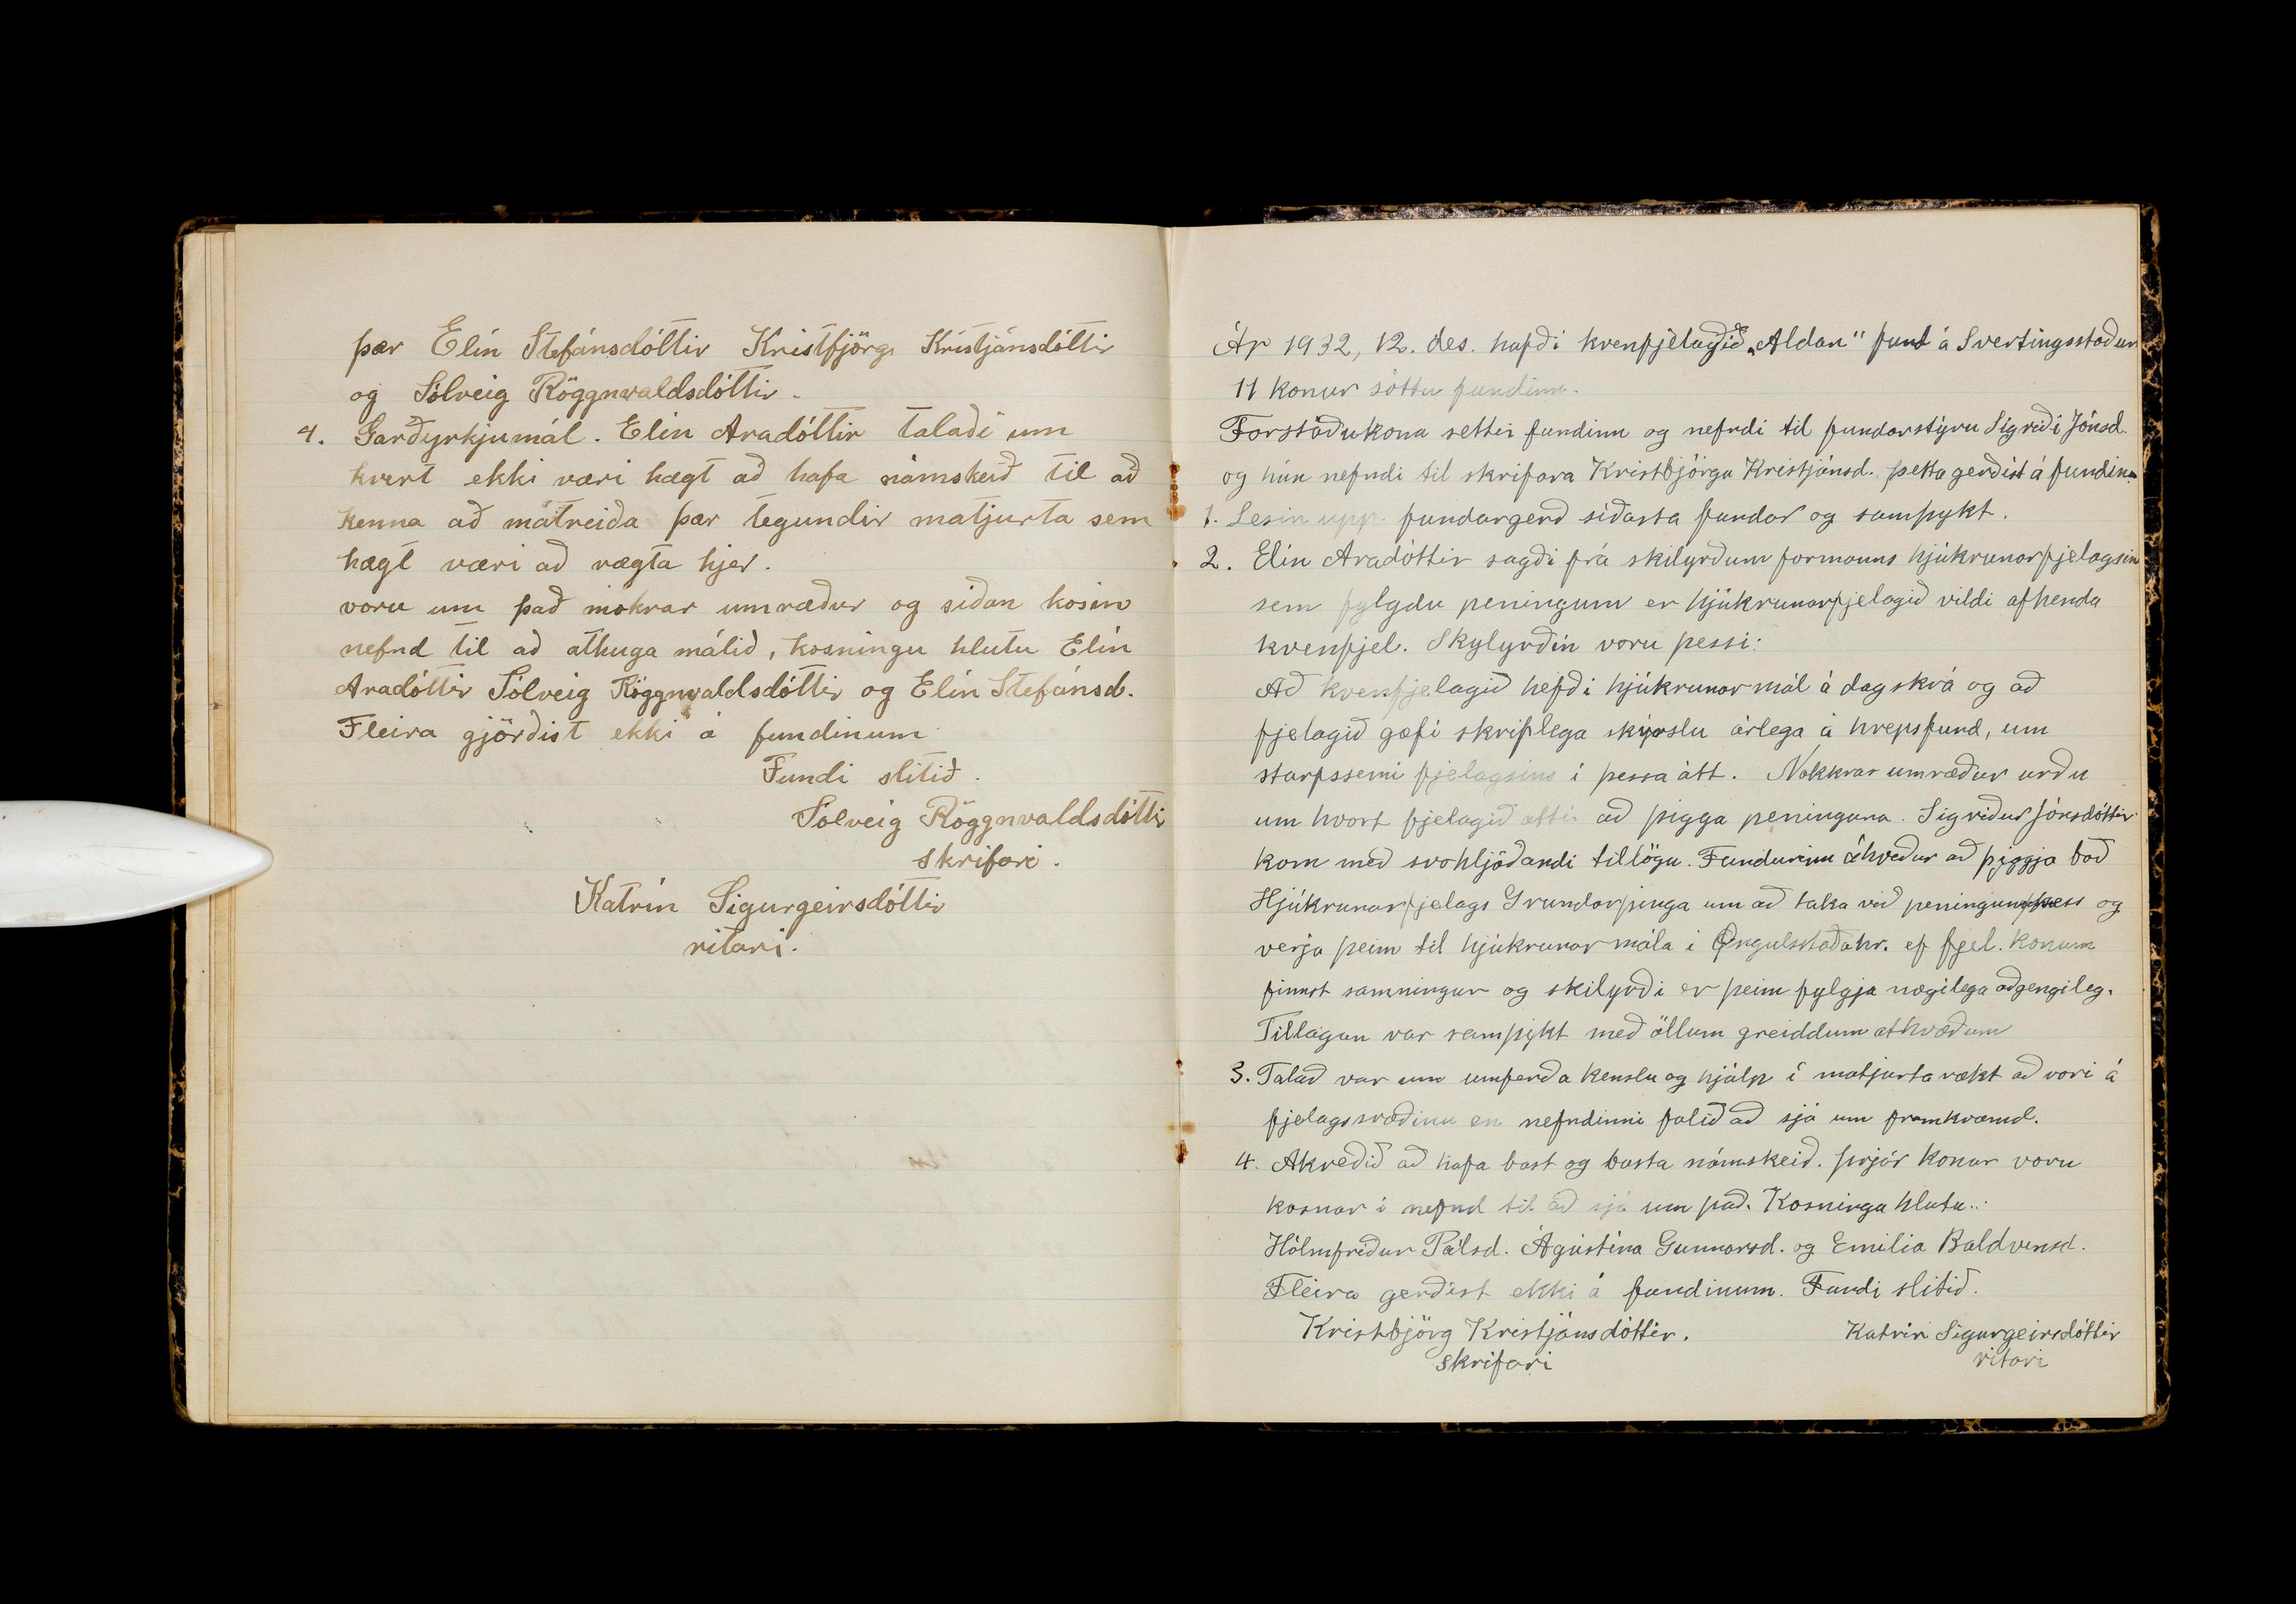 þær Elín Stefánsdóttir Kristfjörg Kristjánsdóttir
og Sólveig Röggnvaldsdóttir.
4. Garðyrkjumál. Elín Aradóttir talaði um
hvert ekki væri hægt að hafa námskeið til að
kenna að mátreiða þær tegundir matjurta sem
hægt væri að rægta hjer.
voru um það nokrar umræður og síðan kosin
nefnd til að athuga málið, kosningu hlutu Elín
Aradóttir Sólveig Röggnvaldsdóttir og Elín Stefánsd.
Fleira gjörðist ekki á fundinum
Fundi slitið.
Sólveig Röggnvaldsdóttir
skrifari.
Katrín Sigurgeirsdóttir
ritari.
Ár 1932, 12. des. hafði kvenfjelagið „Aldan" fund á Svertingsstöðum
11 konur sóttu fundinn.
Forstöðukona setti fundinn og nefndi til fundarstýru Sigríði Jónsd.
og hún nefndi til skrifara Kristbjörgu Kristjánsd. þetta gerðist á fundinum
1. Lesin upp fundargerð síðasta fundar og samþykt.
2. Elín Aradóttir sagði frá skilyrðum formanns hjúkrunarfjelagsin
sem fylgdu peningum er hjúkrunarfjelagið vildi afhenda
kvenfjel. Skylyrðin voru þessi:
Að kvenfjelagið hefði hjúkrunarmál á dagskrá og að
fjelagið gæfi skriflega skýrslu árlega á hrepsfund, um
starfssemi fjelagsins í þessa átt. Nokkrar umræður urðu
um hvort fjelagið ætti að þigga peningana. Sigríður Jónsdóttir
kom með svohljóðandi tillögu. Fundurinn ákveður að þiggja boð
Hjúkrunarfjelags Grundarþinga um að taka við peningum þess og
verja þeim til hjúkrunar mála í Öngulsstaðahr. ef fjel. konum
finnst samningur og skilyrði er þeim fylgja nægilega aðgengileg.
Tillagan var samþykt með öllum greiddum atkvæðum
3. Talað var um umferða kenslu og hjálp í matjurta rækt að vori á
fjelagssvæðinu en nefndinni falið að sjá um framkvæmd.
4. Akveðið að hafa bast og basta námskeið. þrjár konur voru
kosnar í nefnd til að sjá um það. Kosningu hlutu:
Hólmfríður Pálsd. Ágústína Gunnarsd. og Emilía Baldvinsd.
Fleira gerðist ekki á fundinum. Fundi slitið.
Kristbjörg Kristjánsdóttir. Katrín Sigurgeirsdóttir
skrifari ritari